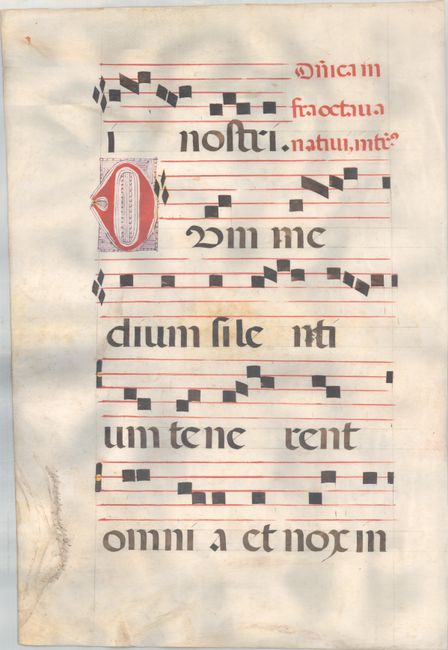 Dñica in
fra octaua
i nostri. natiui,
Dum me
dium sile nti
um tene rent
omni a et nox in